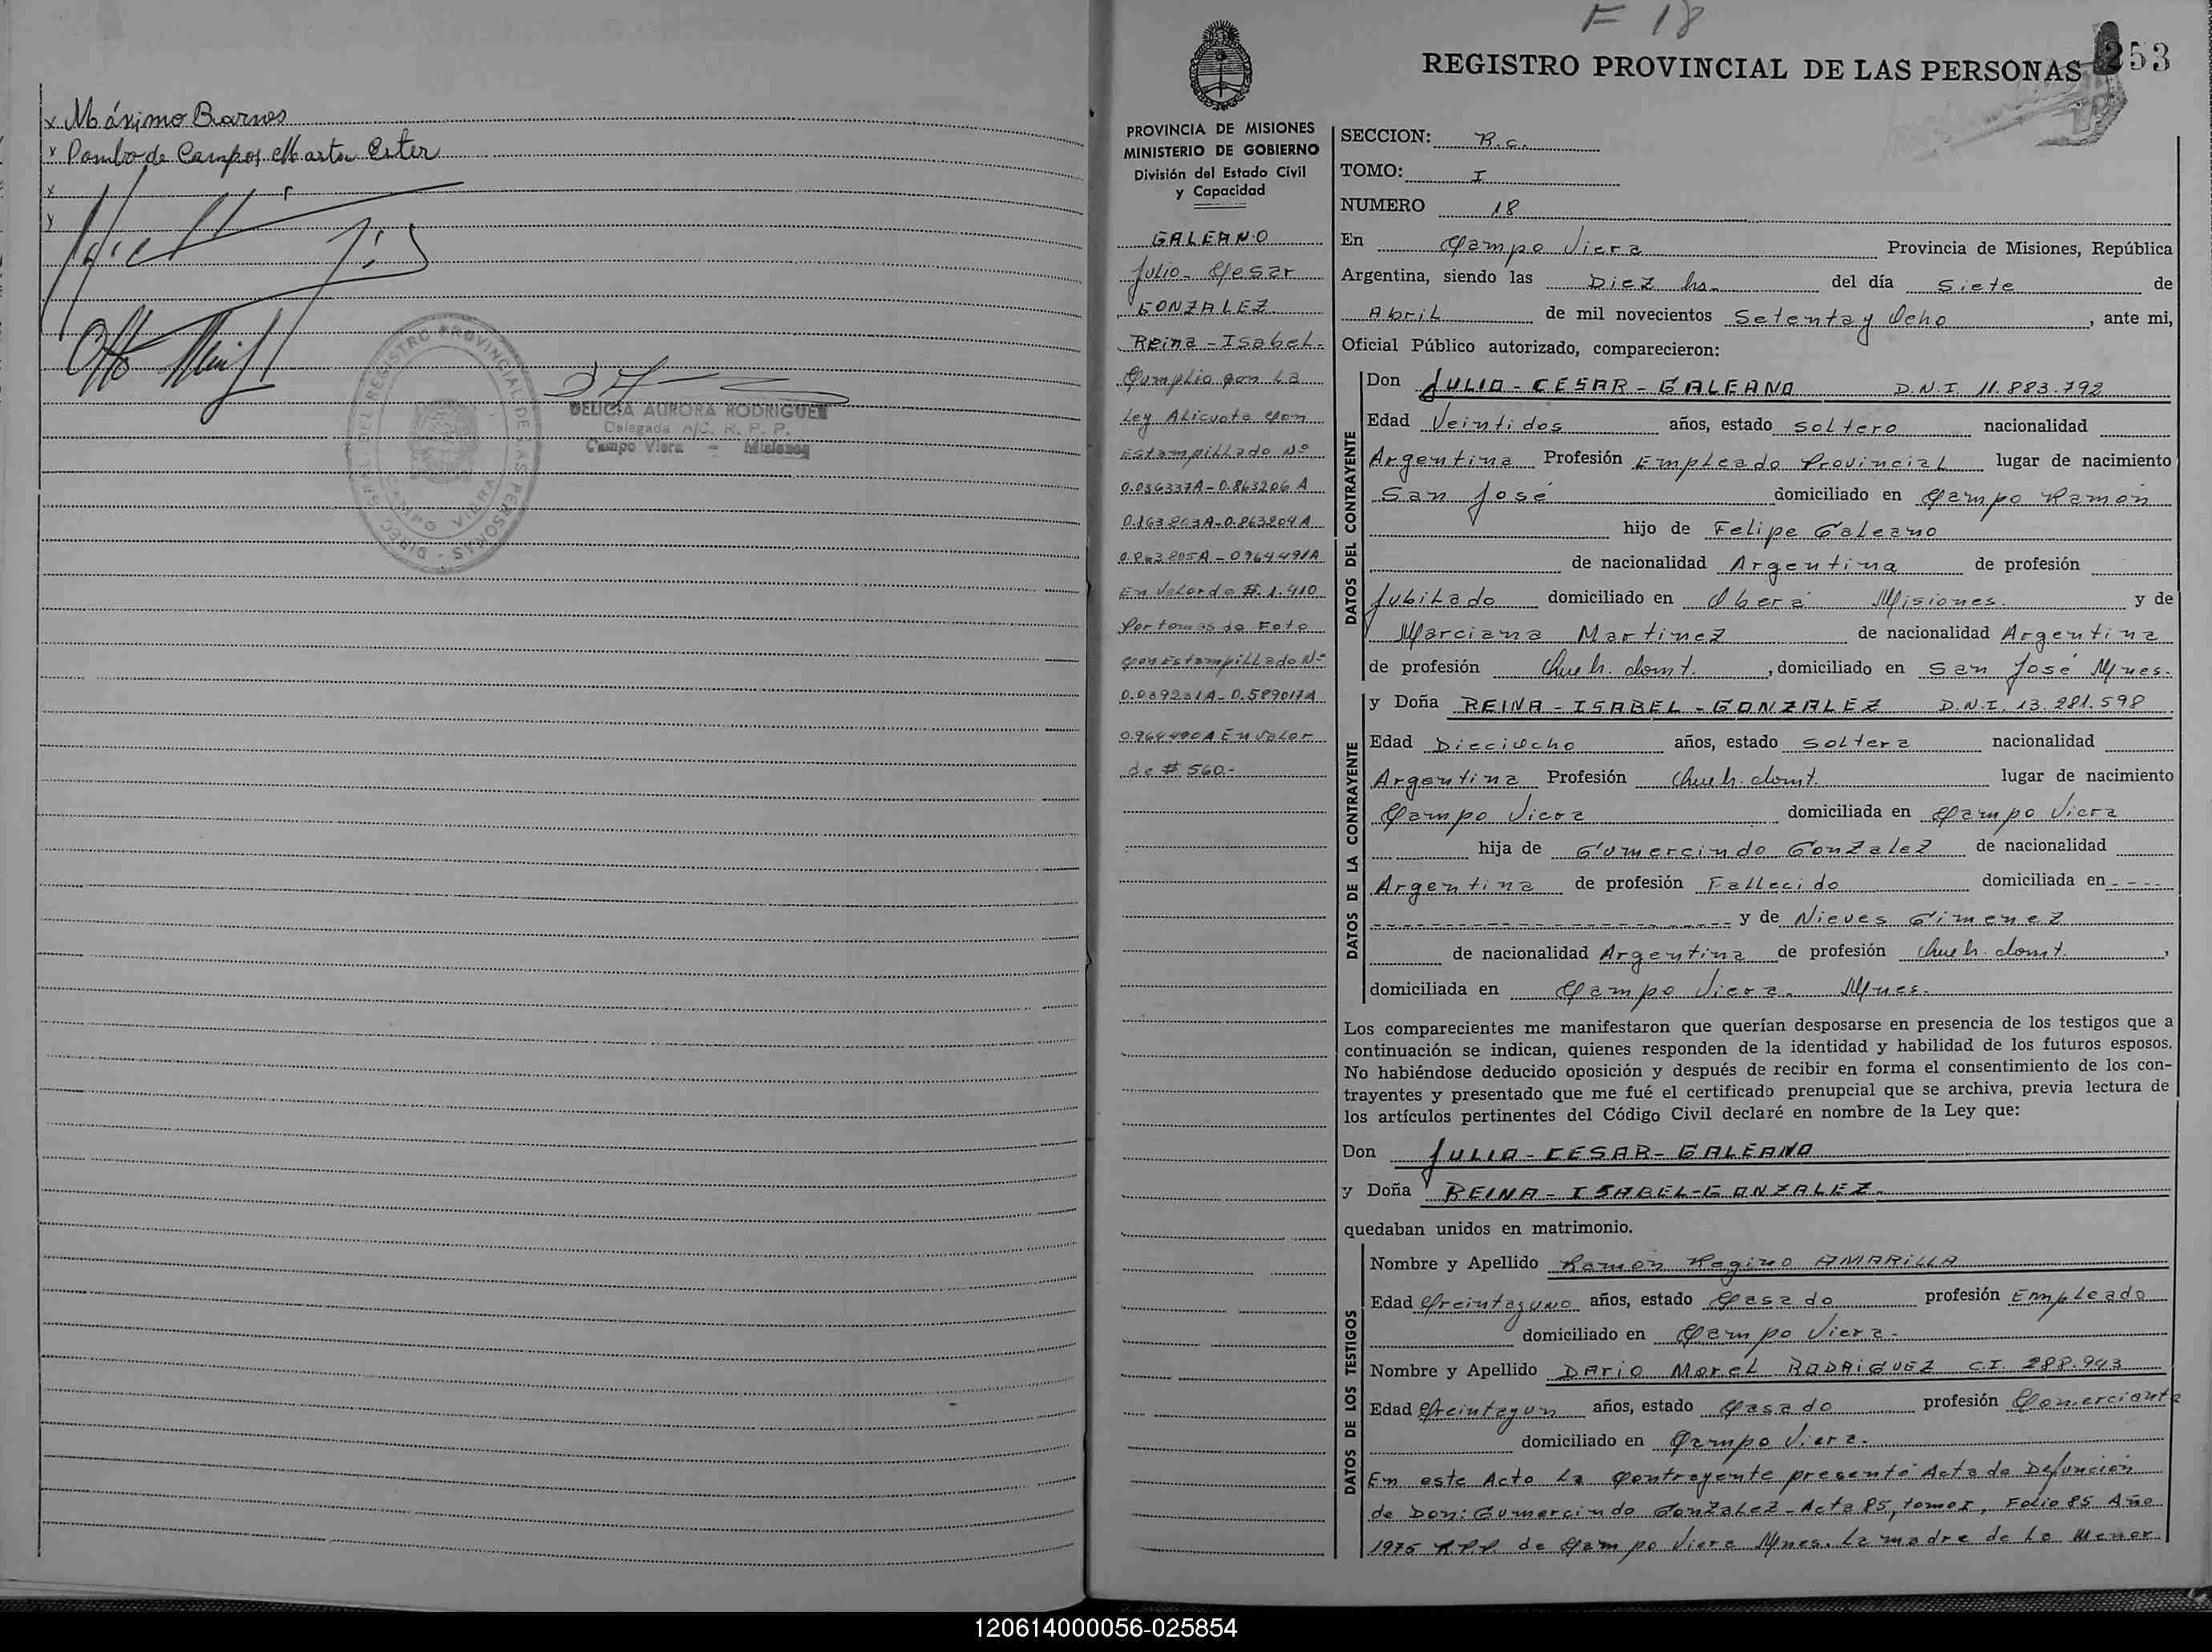 x Máximo Barnes
x Pombo de Campos Marta Ester
x
x
DIREC. GRAL. DEL REGISTRO PROVINCIAL DE LAS PERSONAS
CAMPO VIERA
DELICIA AURORA RODRIGUEZ
Delegada A/C. R. P. P.
Campo Viera - Misiones
F 18
REGISTRO PROVINCIAL DE LAS PERSONAS
253
PROVINCIA DE MISIONES
MINISTERIO DE GOBIERNO
División del Estado Civil
y Capacidad
GALEANO
Julio - Cesar
GONZALEZ
Reina - Isabel -
Cumplio con La
Ley Alicuota con
Estampillado Nº
0.036337A - 0.863206 A
0.863803A - 0.863204 A
0.863805A - 0964491A
En Valor de $. 1.410
Por tomas de Foto
con Estampillado Nº
0.039231A - 0.589017A
0.964490A En valor
de $ 560.-
SECCION: R.c.
TOMO: I
NUMERO 18
En Campo Viera Provincia de Misiones, República
Argentina, siendo las Diez hs. del día Siete de
Abril de mil novecientos Setenta y Ocho, ante mi,
Oficial Público autorizado, comparecieron:
DATOS DEL CONTRAYENTE
Don JULIO - CESAR - GALEANO D.N.I 11.883.792
Edad Veintidos años, estado Soltero nacionalidad
Argentina Profesión Empleado Provincial lugar de nacimiento
San José domiciliado en Campo Ramón
hijo de Felipe Galeano
de nacionalidad Argentina de profesión
Jubilado domiciliado en Oberá Misiones. y de
Marciana Martinez de nacionalidad Argentina
de profesión Queh. domt., domiciliado en San José Mnes.
DATOS DE LA CONTRAYENTE
y Doña REINA - ISABEL - GONZALEZ D.N.I. 13.281.598
Edad Dieciocho años, estado Soltera nacionalidad
Argentina Profesión Queh. domt. lugar de nacimiento
Campo Viera domiciliada en Campo Viera
hija de Gumercindo Gonzalez de nacionalidad
Argentina de profesión Fallecido domiciliada en - - - -
- - - - - - - - - - y de Nieves Gimenez
de nacionalidad Argentina de profesión Queh. domt.,
domiciliada en Campo Viera. Mnes.
Los comparecientes me manifestaron que querían desposarse en presencia de los testigos que a
continuación se indican, quienes responden de la identidad y habilidad de los futuros esposos.
No habiéndose deducido oposición y después de recibir en forma el consentimiento de los con-
trayentes y presentado que me fué el certificado prenupcial que se archiva, previa lectura de
los artículos pertinentes del Código Civil declaré en nombre de la Ley que:
Don JULIO - CESAR - GALEANO
y Doña REINA - ISABEL - GONZALEZ.
quedaban unidos en matrimonio.
DATOS DE LOS TESTIGOS
Nombre y Apellido Ramón Regino AMARILLA
Edad Treintayuno años, estado Casado profesión Empleado
domiciliado en Campo Viera.
Nombre y Apellido DArio Morel RODRIGUEZ C.I. 288.943
Edad Treintayun años, estado Casado profesión Comerciante
domiciliado en Campo Viera.
En este Acto La Contrayente presentó Acta de Defunción
de Don: Gumercindo Gonzalez - Acta 85, tomo I, Folio 85 Año
1975 RPP. de Campo Viera Mnes. La madre de la Menor
120614000056-025854